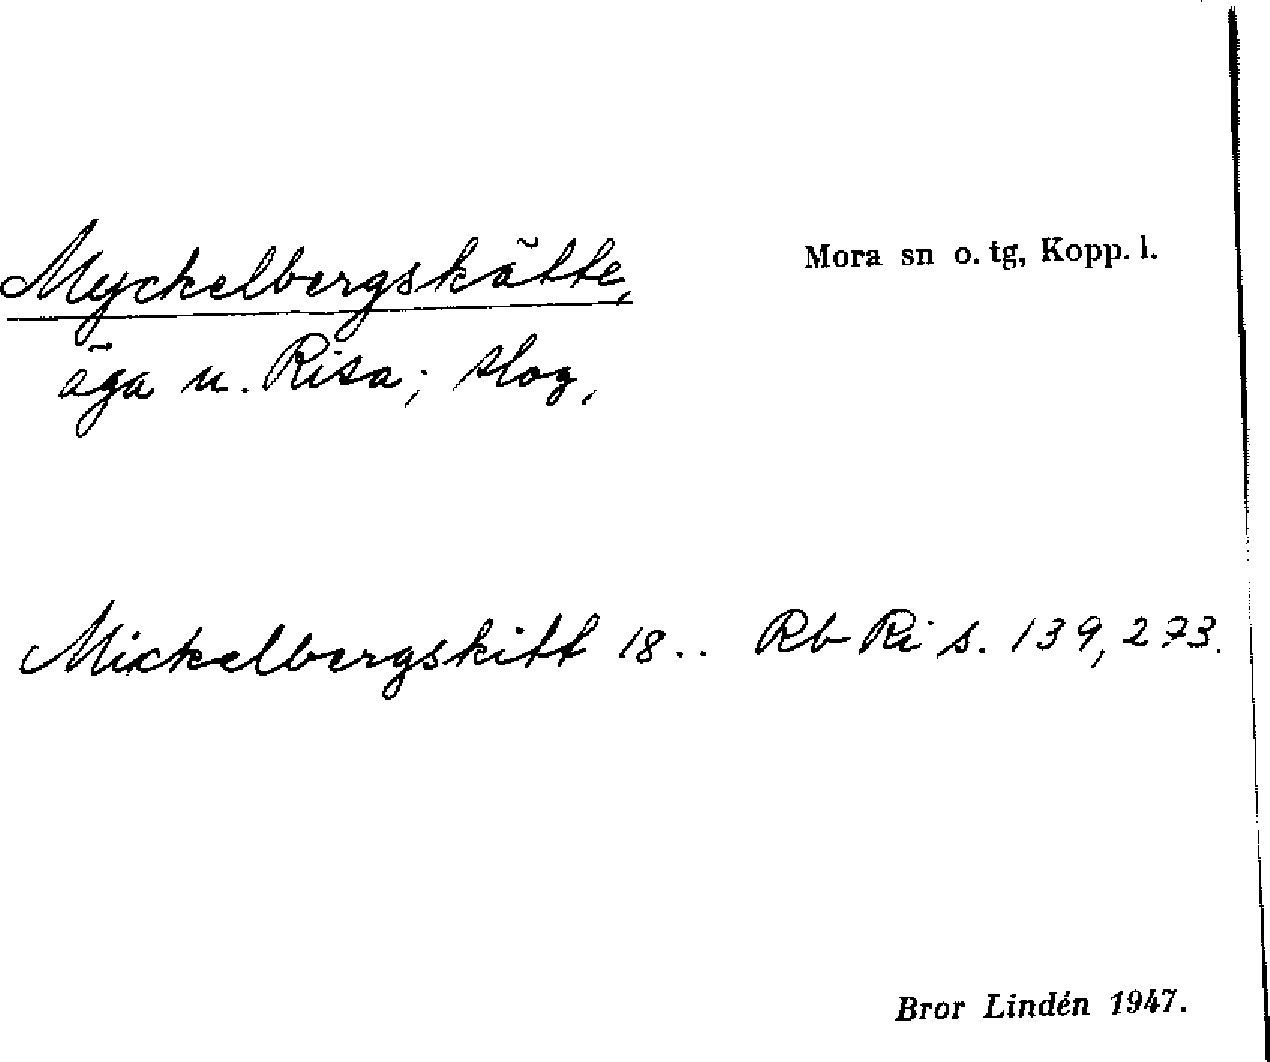 Myckelbergskätte, Mora sn o. tg, Kopp. l.
äga u. Risa; skog,
Mickelbergskitt 18.. Rb Ri s. 139, 273.
Bror Lindén 1947.